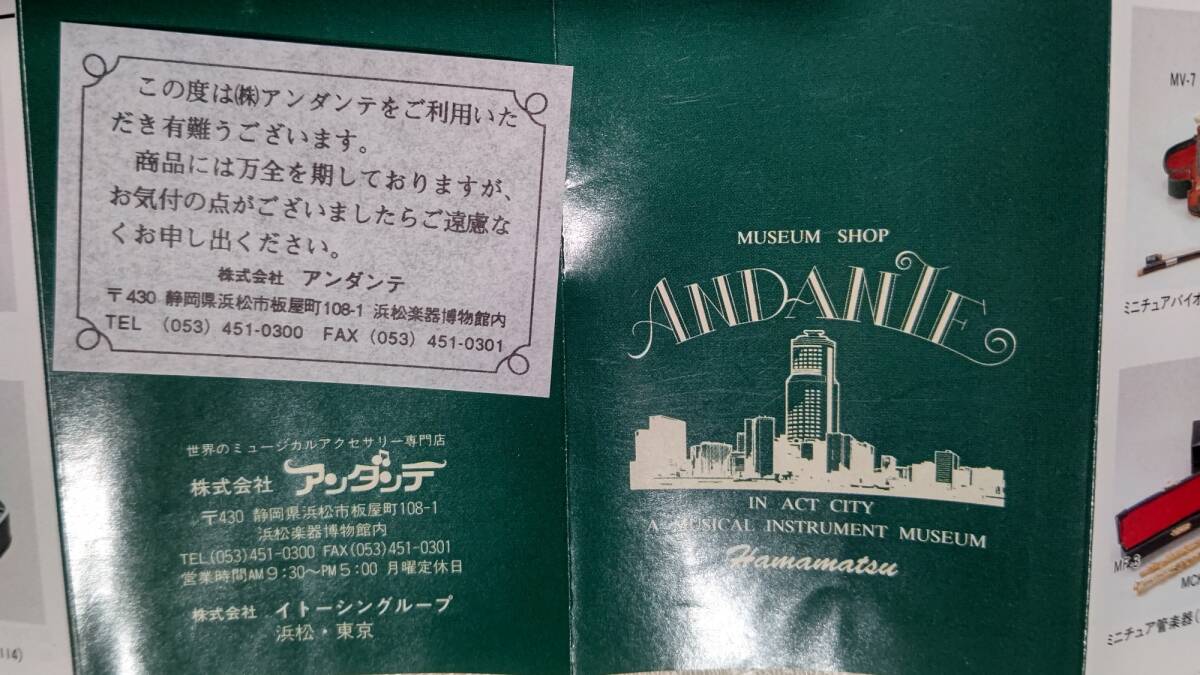 この度は㈱アンダンテをご利用いた
だき有難うございます。
商品には万全を期しておりますが、
お気付の点がございましたらご遠慮な
くお申し出ください。
株式会社 アンダンテ
〒430 静岡県浜松市板屋町108-1 浜松楽器博物館内
TEL (053) 451-0300 FAX (053) 451-0301
世界のミュージカルアクセサリー専門店
株式会社 アンダンテ
〒430 静岡県浜松市板屋町108-1
浜松楽器博物館内
TEL(053)451-0300 FAX(053)451-0301
営業時間AM9:30〜PM5:00 月曜定休日
株式会社 イトーシングループ
浜松・東京
MUSEUM SHOP
ANDANTE
IN ACT CITY
A MUSICAL INSTRUMENT MUSEUM
Hamamatsu
MV-7
ミニチュアバイオ
MF-3
MC
ミニチュア管楽器(
114)